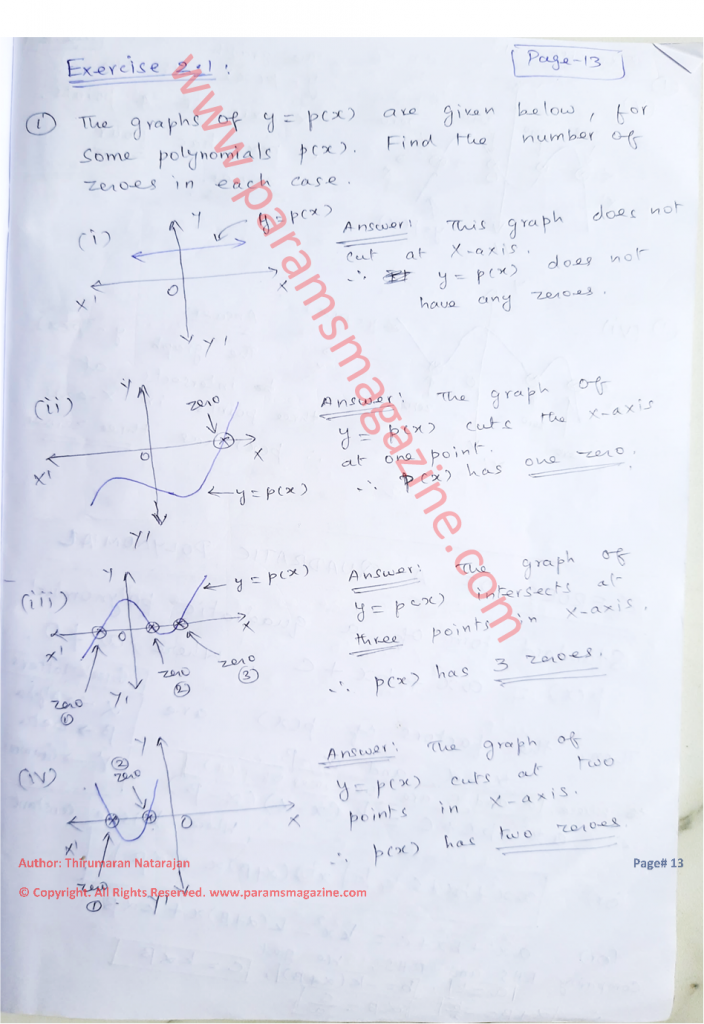 Exercise 2.1:
Page-13
① The graphs of y = p(x) are given below, for
some polynomials p(x). Find the number of
zeroes in each case.
(i)
Y
y = p(x)
O
X
X'
Y'
Answer: This graph does not
cut at X-axis.
∴ y = p(x) does not
have any zeroes.
(ii)
Y
zero
O
X
X'
y = p(x)
Y'
Answer: The graph of
y = p(x) cuts the X-axis
at one point.
∴ p(x) has one zero.
(iii)
Y
y = p(x)
O
X
X'
zero
①
zero
②
zero
③
Y'
Answer: The graph of
y = p(x) intersects at
three points in X-axis.
∴ p(x) has 3 zeroes.
(iv)
Y
②
zero
O
X
X'
zero
①
Y'
Answer: The graph of
y = p(x) cuts at two
points in X-axis.
∴ p(x) has two zeroes.
www.paramsmagazine.com
Author: Thirumaran Natarajan
Page# 13
© Copyright. All Rights Reserved. www.paramsmagazine.com